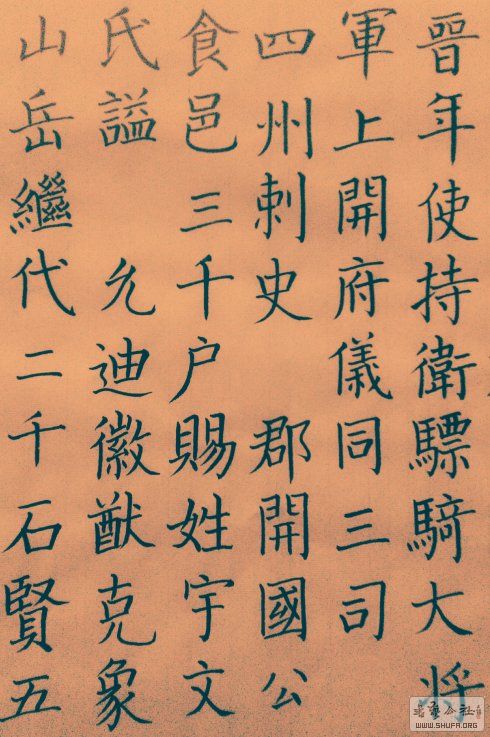 晉年使持衛驃騎大將
軍上開府儀同三司
四州刺史 郡開國公
食邑三千户賜姓宇文
氏謚 允迪徽猷克象
山岳繼代二千石賢五
WWW.SHUFA.ORG